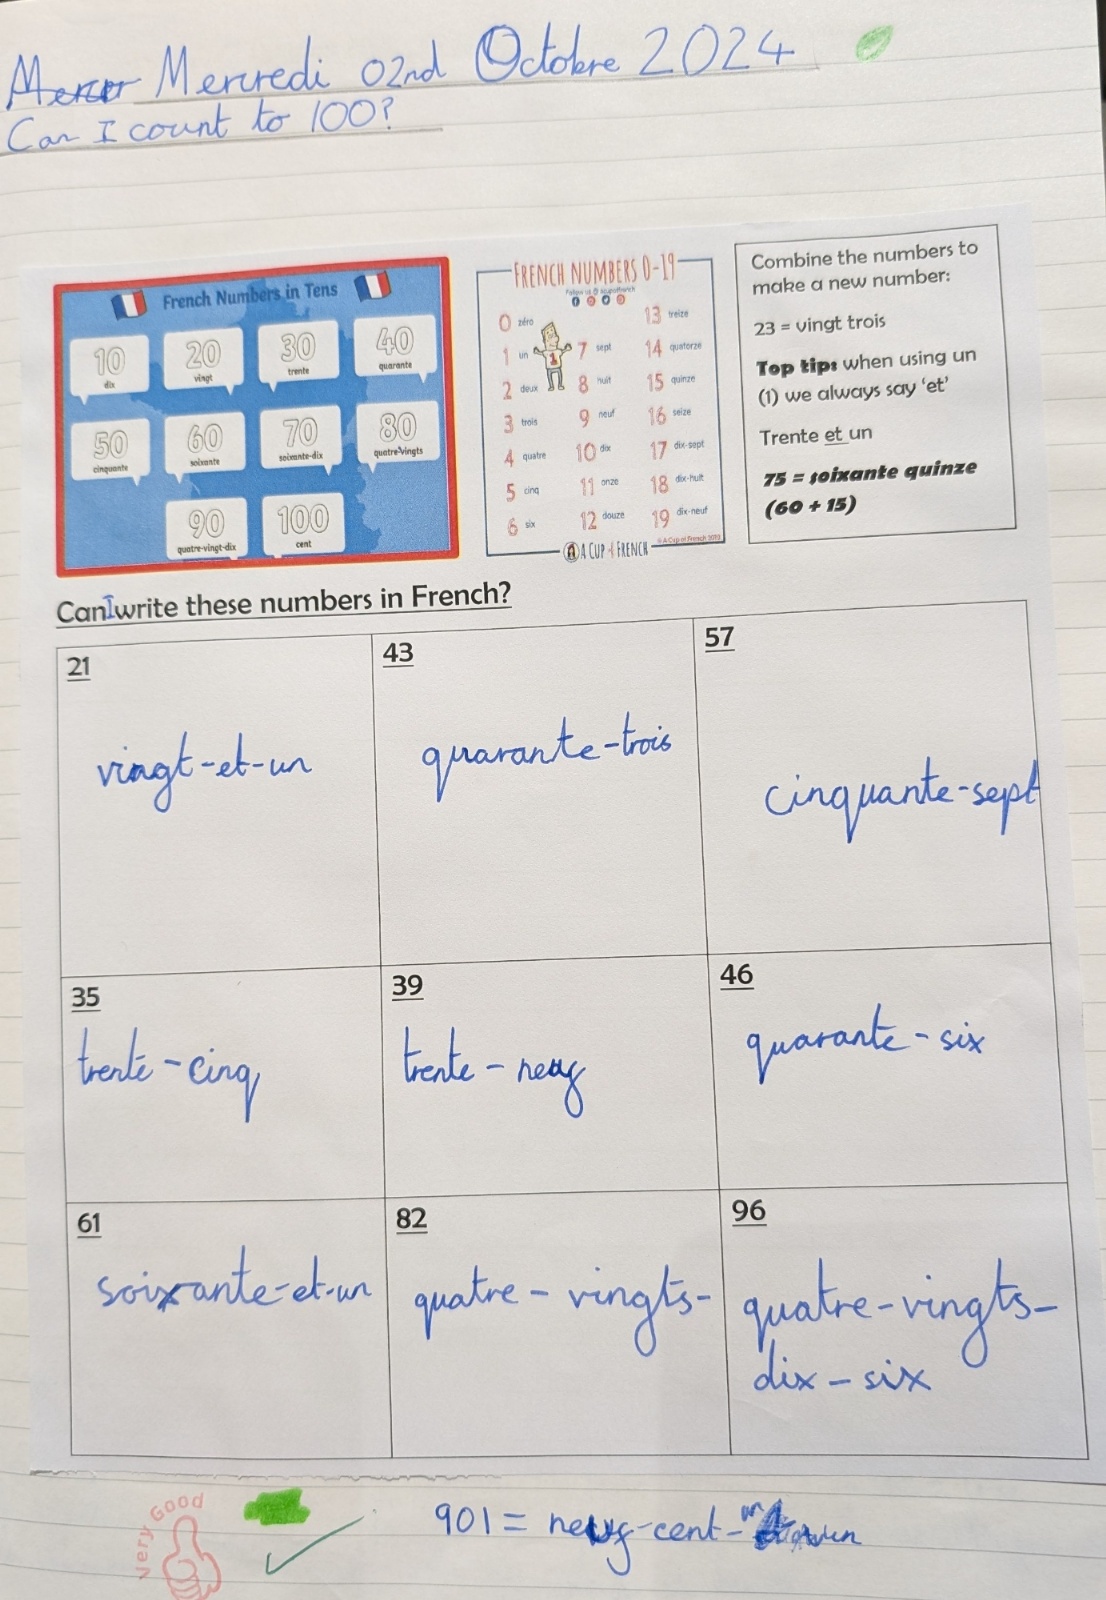 Mercredi 02nd Octobre 2024
Can I count to 100?
French Numbers in Tens
10 dix
20 vingt
30 trente
40 quarante
50 cinquante
60 soixante
70 soixante-dix
80 quatre-vingts
90 quatre-vingt-dix
100 cent
FRENCH NUMBERS 0-19
Follow us @ acupoffrench
0 zéro
1 un
2 deux
3 trois
4 quatre
5 cinq
6 six
7 sept
8 huit
9 neuf
10 dix
11 onze
12 douze
13 treize
14 quatorze
15 quinze
16 seize
17 dix-sept
18 dix-huit
19 dix-neuf
1
A CUP OF FRENCH
© A Cup of French
Combine the numbers to
make a new number:
23 = vingt trois
Top tip: when using un
(1) we always say ‘et’
Trente et un
75 = soixante quinze
(60 + 15)
Can I write these numbers in French?
21
vingt-et-un
43
quarante-trois
57
cinquante-sept
35
trente-cinq
39
trente-neuf
46
quarante-six
61
soixante-et-un
82
quatre-vingts-
96
quatre-vingts-
dix-six
Very Good
901 = neuf-cent- un